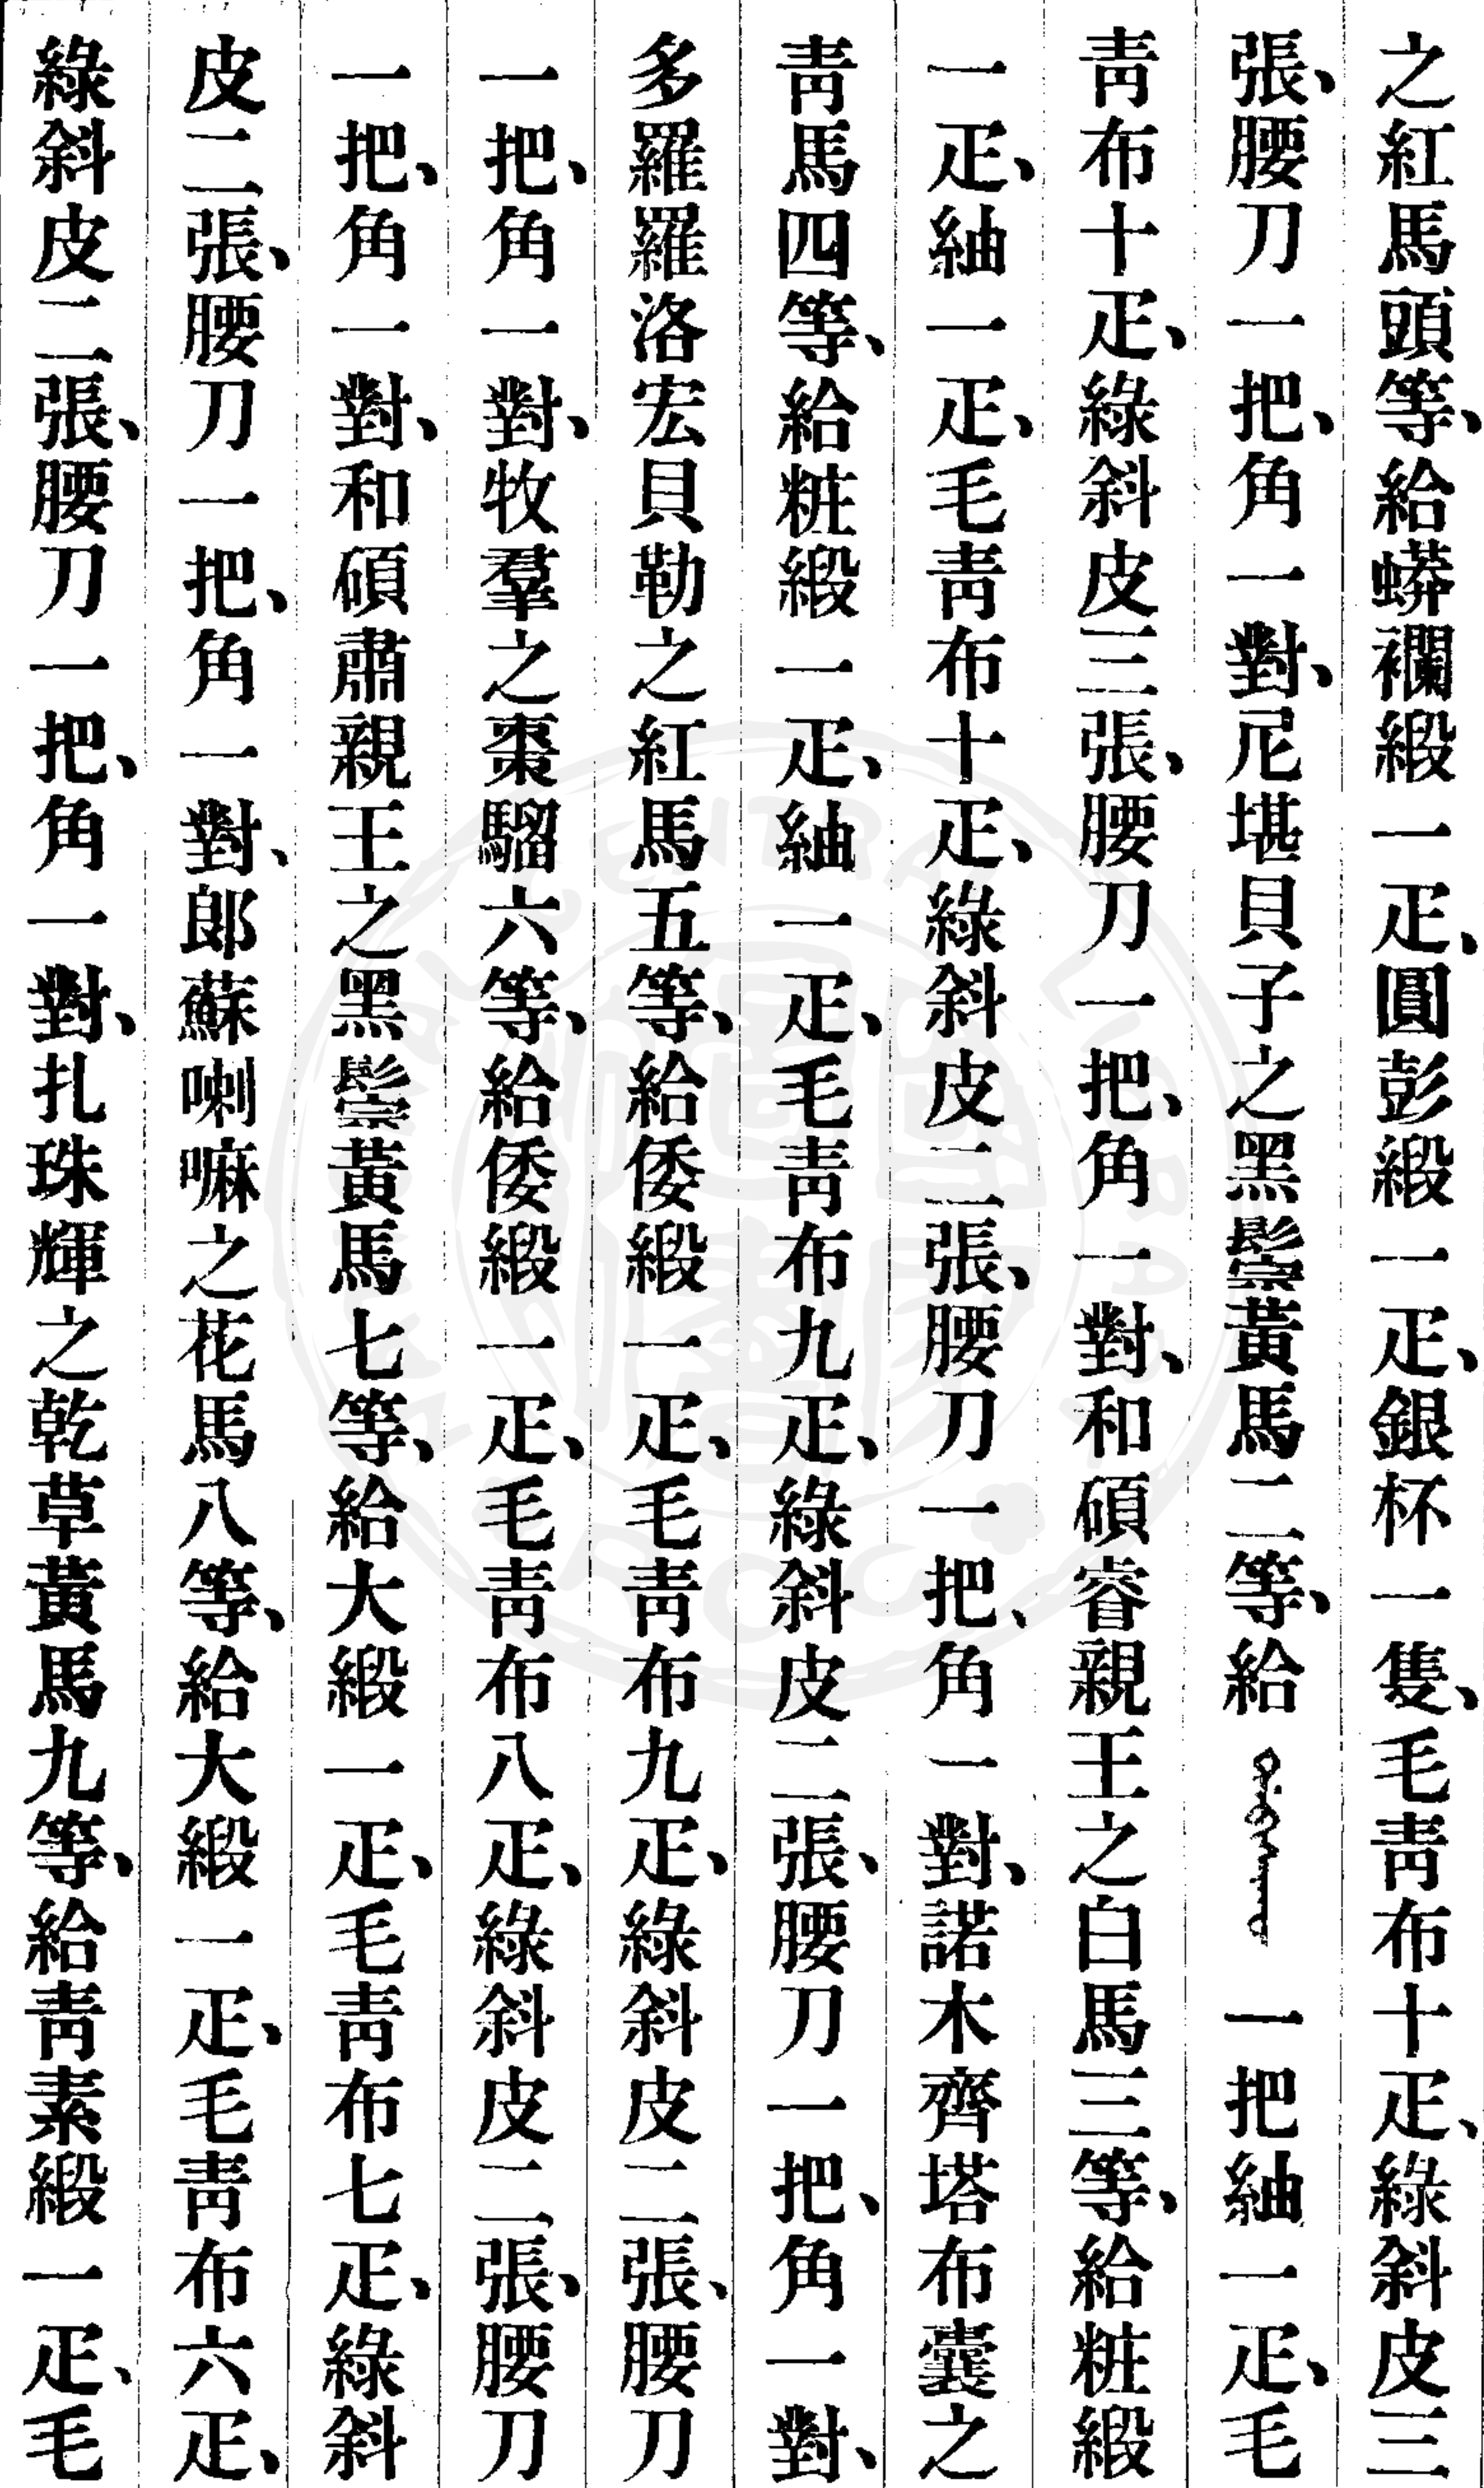 之紅馬頭等、給蟒襴緞一疋、圓彭緞一疋、銀杯一隻、毛靑布十疋、綠斜皮三
張、腰刀一把、角一對、尼堪貝子之黑鬃黃馬二等、給一把紬一疋、毛
靑布十疋、綠斜皮三張、腰刀一把、角一對、和碩睿親王之白馬三等、給粧緞
一疋、紬一疋、毛靑布十疋、綠斜皮二張、腰刀一把、角一對、諾木齊塔布囊之
靑馬四等、給粧緞一疋、紬一疋、毛靑布九疋、綠斜皮二張、腰刀一把、角一對、
多羅羅洛宏貝勒之紅馬五等、給倭緞一疋、毛靑布九疋、綠斜皮二張、腰刀
一把、角一對、牧羣之棗騮六等、給倭緞一疋、毛靑布八疋、綠斜皮二張、腰刀
一把、角一對、和碩肅親王之黑鬃黃馬七等、給大緞一疋、毛靑布七疋、綠斜
皮二張、腰刀一把、角一對、郎蘇喇嘛之花馬八等、給大緞一疋、毛靑布六疋、
綠斜皮二張、腰刀一把、角一對、扎珠輝之乾草黃馬九等、給靑素緞一疋、毛
NATIONAL CENTRAL LIBRARY
ROC